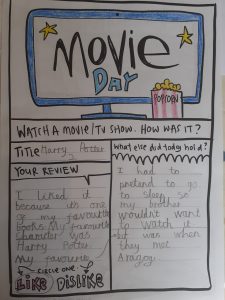 MOVIE
DAY
POPCORN
WATCH A MOVIE/TV SHOW. HOW WAS IT?
TITLE Harry Potter
What else did today hold?
YOUR REVIEW
I liked it
because it's one
of my favourite
books. My favourite
character was
Harry Potter.
My favourite
CIRCLE ONE
LIKE DISLIKE
I had to
pretend to go
to sleep so
my brother
wouldn't want
to watch it
was when
they met